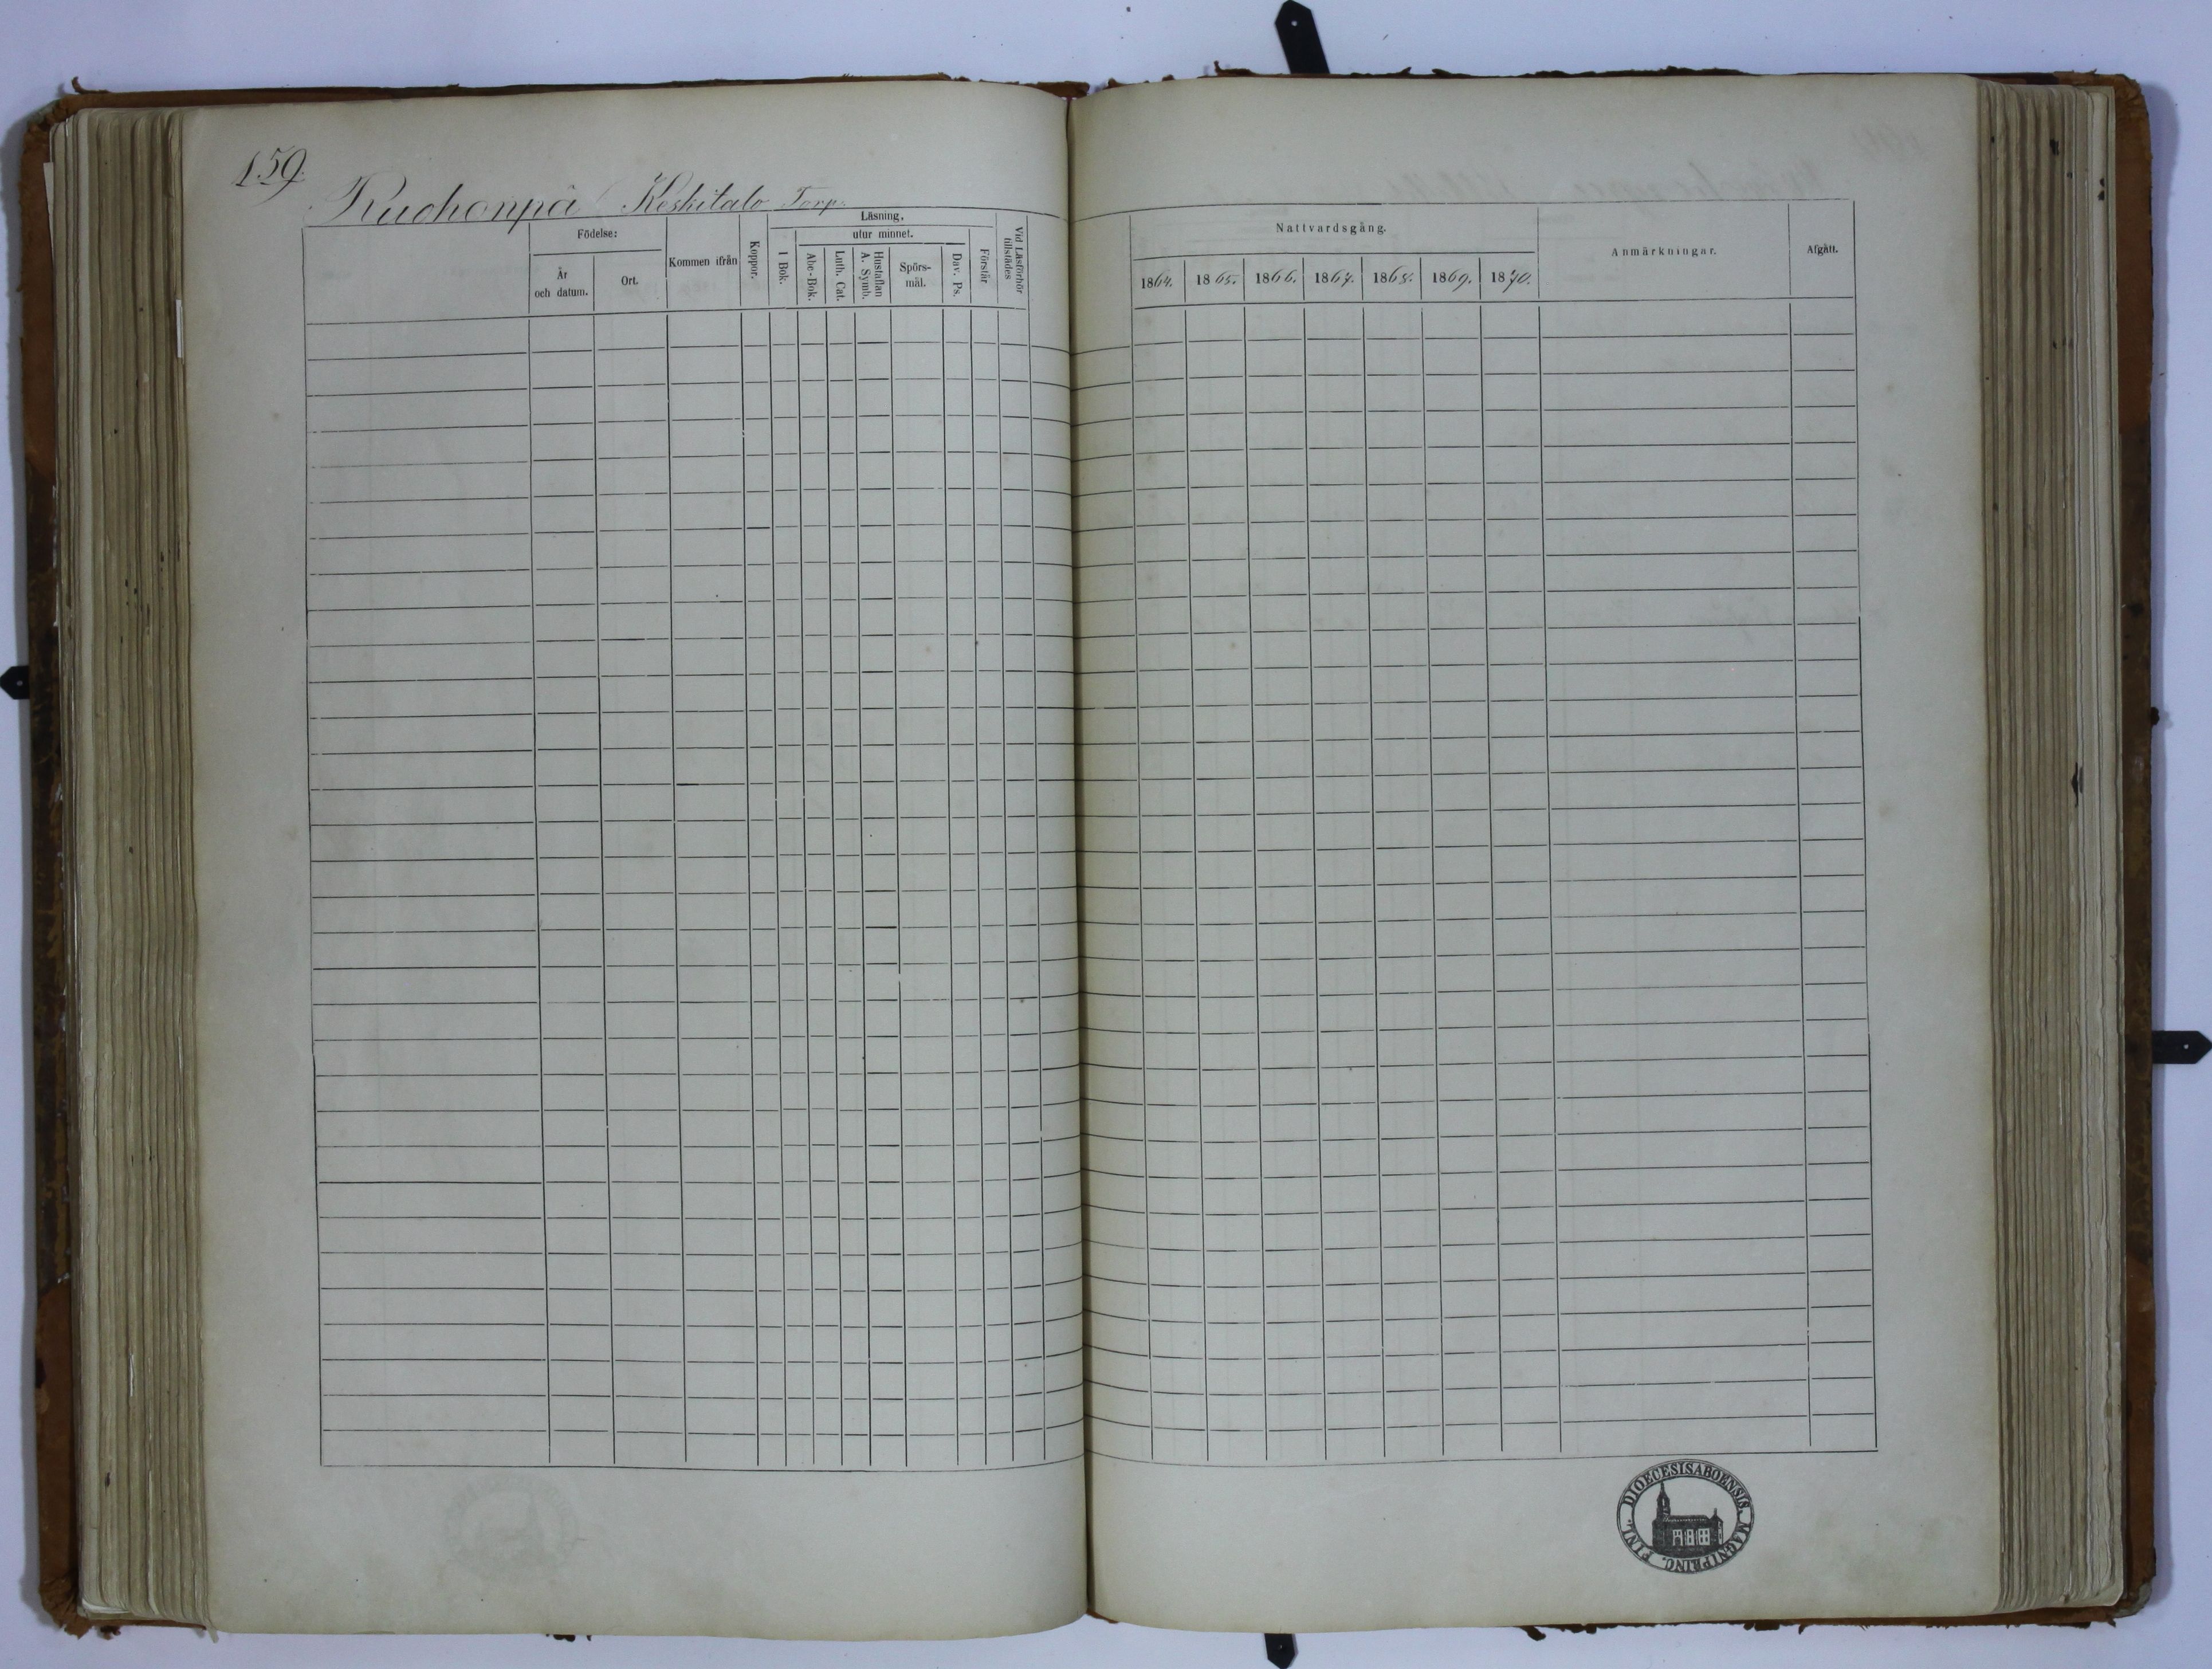 159.
Ruohonpä Keskitalo Torp.
Födelse:
År
och datum.
Ort.
Kommen ifrån
Koppor.
Läsning,
utur minnet.
I Bok.
Abc-Bok.
Luth. Cat.
Hustaflan
A. Symb.
Spörs-
mål.
Dav. Ps.
Förstår
Vid Läsförhör
tillstädes
Nattvardsgång.
1864.
1865.
1866.
1867.
1868.
1869.
1870.
Anmärkningar.
Afgått.
DIOECESISABOENSIS. MAGNIPRINC. FINL.